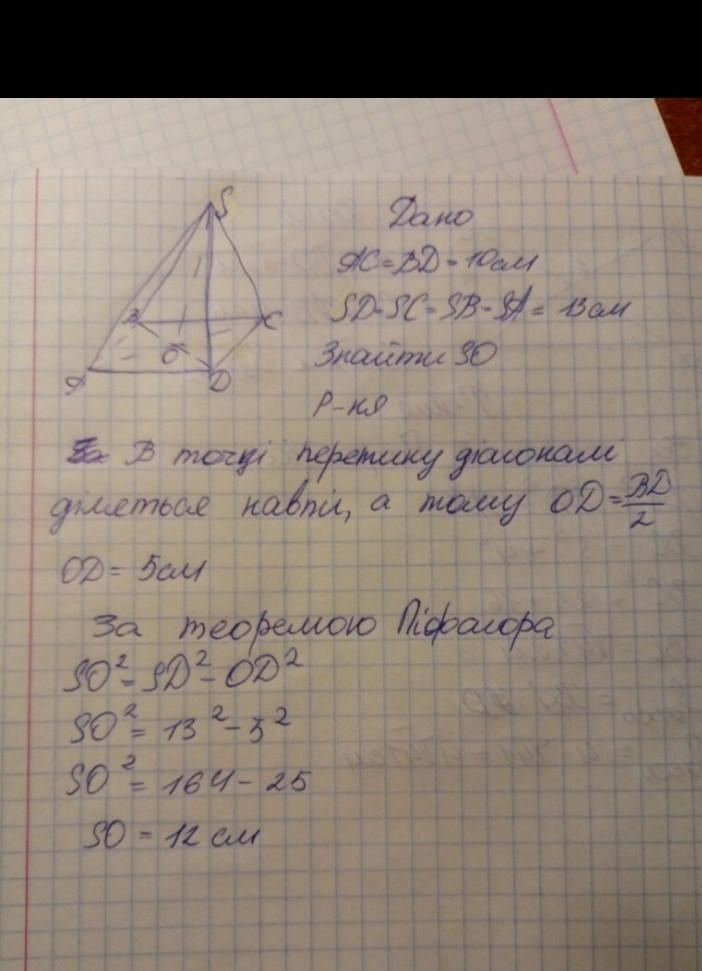 S
B
C
O
A
D
Дано
AC=BD=10см
SD=SC=SB=SA=13см
Знайти SO
Р-ня
За В точці перетину діагоналі
діляться навпіл, а тому OD=BD/2
OD= 5см
За теоремою Піфагора
SO²=SD²-OD²
SO²=13²-5²
SO²=164-25
SO=12см